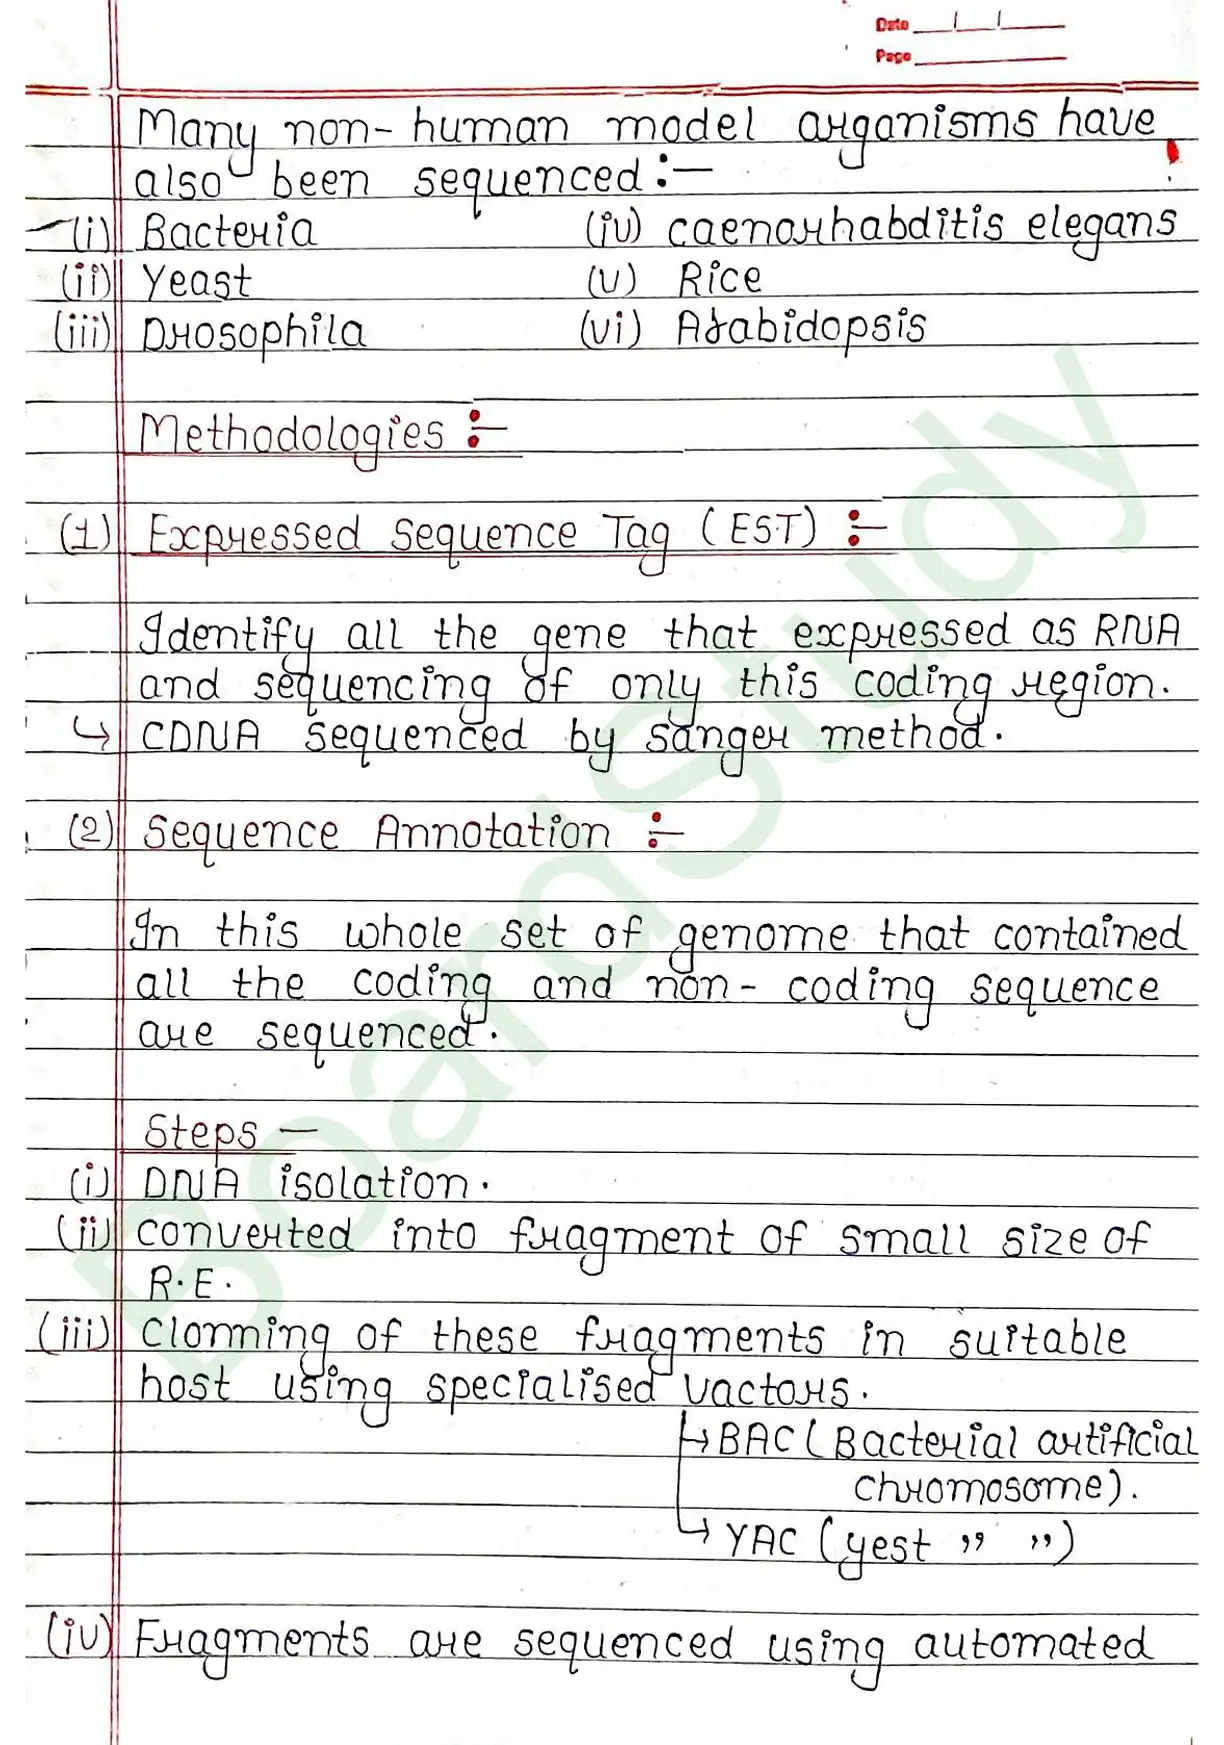 Date
Page
Many non-human model organisms have
also been sequenced :-
(i) Bacteria (iv) caenorhabditis elegans
(ii) Yeast (v) Rice
(iii) Drosophila (vi) Arabidopsis
Methodologies :-
(1) Expressed Sequence Tag (EST) :-
Identify all the gene that expressed as RNA
and sequencing of only this coding region.
↳ CDNA sequenced by sanger method.
(2) Sequence Annotation :-
In this whole set of genome that contained
all the coding and non-coding sequence
are sequenced.
Steps -
(i) DNA isolation.
(ii) converted into fragment of small size of
R.E.
(iii) Clonning of these fragments in suitable
host using specialised vactors.
↳ BAC (Bacterial artificial
chromosome).
↳ YAC (yest " ")
(iv) Fragments are sequenced using automated
BoardStudy